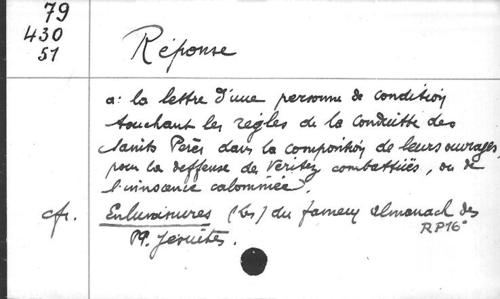 79
430
51
Réponse
a: la lettre d'une personne de condition
touchant les règles de la conduitte des
saints Pères dans la composition de leurs ouvrages,
pour la deffense des Veritez combattuës, ou de
l'innocence calomniée.
cfr. Enluminures (les) du fameux almanach des
PP. Jésuites.
RP16°